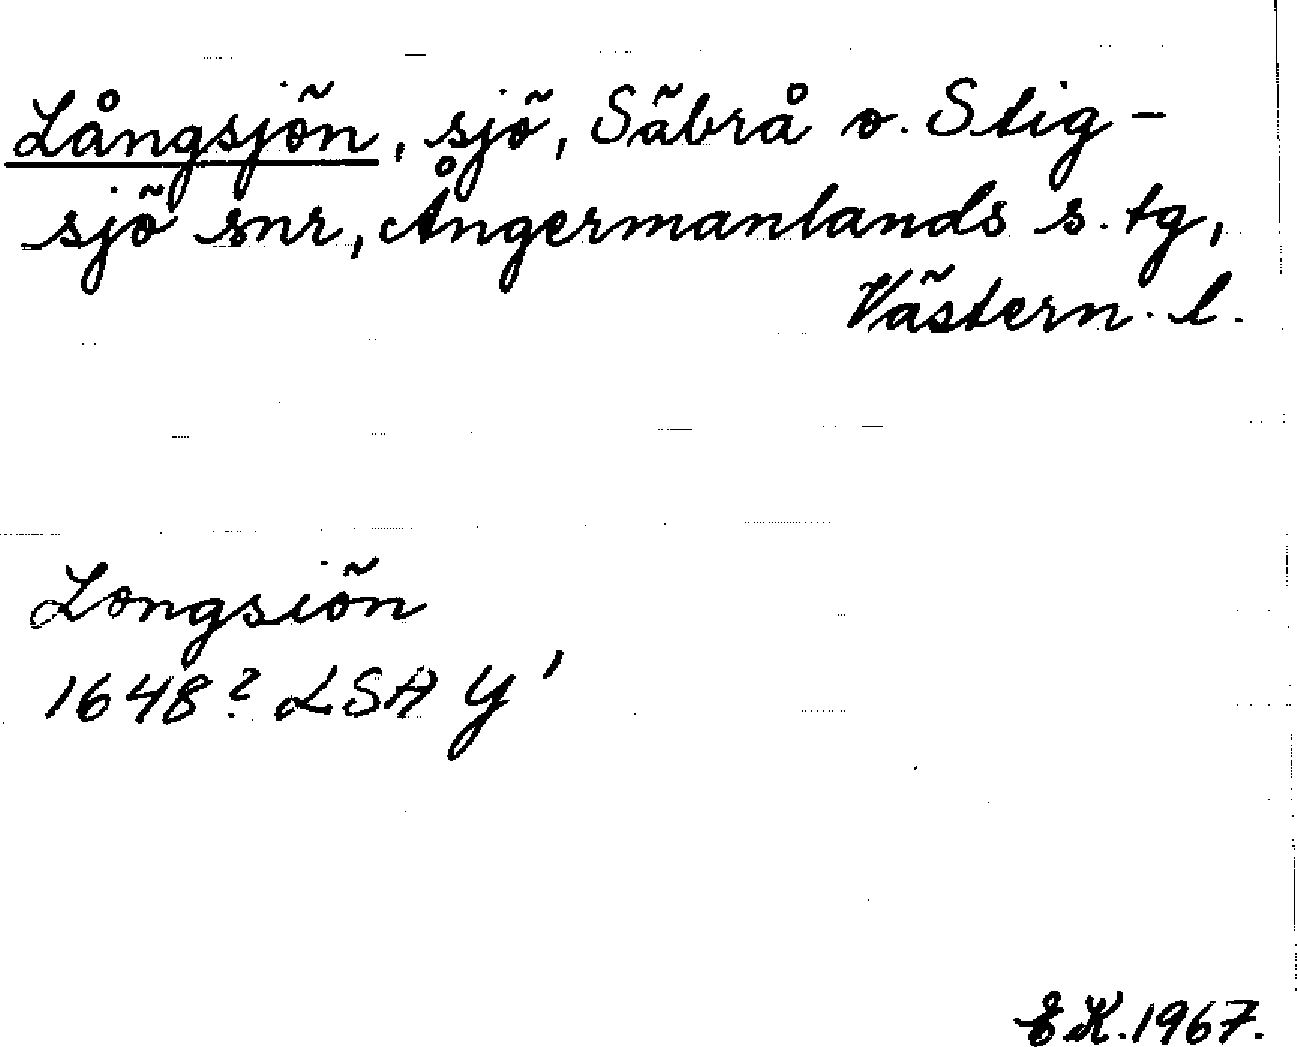 Långsjön, sjö, Säbrå o. Stig-
sjö snr, Ångermanlands s. tg,
Västern. l.
Longsiön
1648? LSA Y'
E.K. 1967.